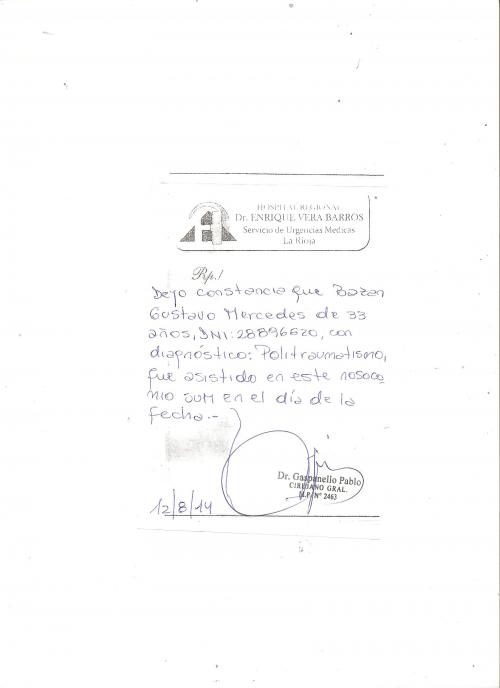 HOSPITAL REGIONAL
Dr. ENRIQUE VERA BARROS
Servicio de Urgencias Medicas
La Rioja
Rp./
Dejo constancia que Bazan
Gustavo Mercedes de 33
años, DNI: 28896620, con
diagnóstico: Politraumatismo,
fue asistido en este nosoco
mio SUM en el día de la
fecha.-
Dr. Gaspanello Pablo
CIRUJANO GRAL.
M.P. N° 2463
12/8/14